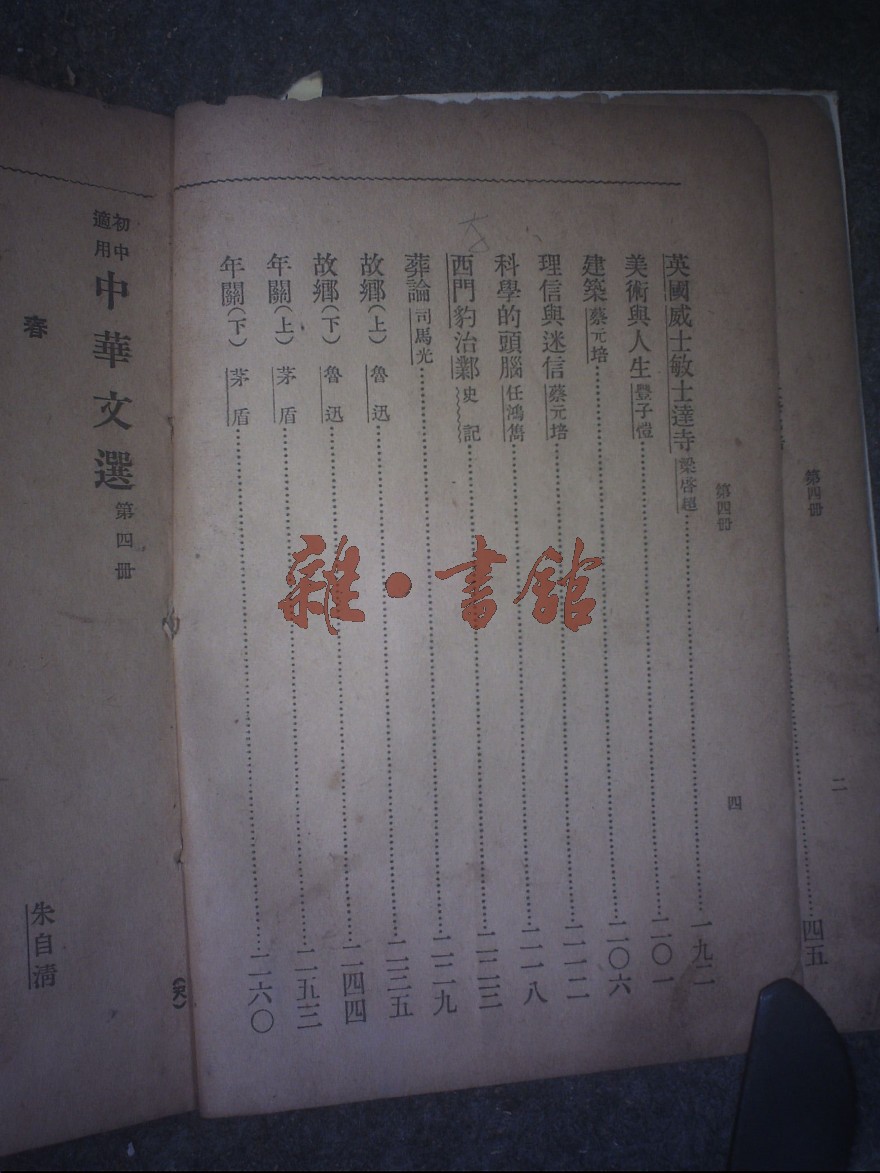 第四冊
二
四五
第四冊
四
英國威士敏士達寺 梁啓超……一九二
美術與人生 豐子愷……二〇一
建築 蔡元培……二〇六
理信與迷信 蔡元培……二一二
科學的頭腦 任鴻雋……二一八
西門豹治鄴 史記……二二三
葬論 司馬光……二二九
故鄉(上) 魯迅……二三五
故鄉(下) 魯迅……二四四
年關(上) 茅盾……二五三
年關(下) 茅盾……二六〇
初中適用 中華文選 第四冊
春
朱自清
雜·書館